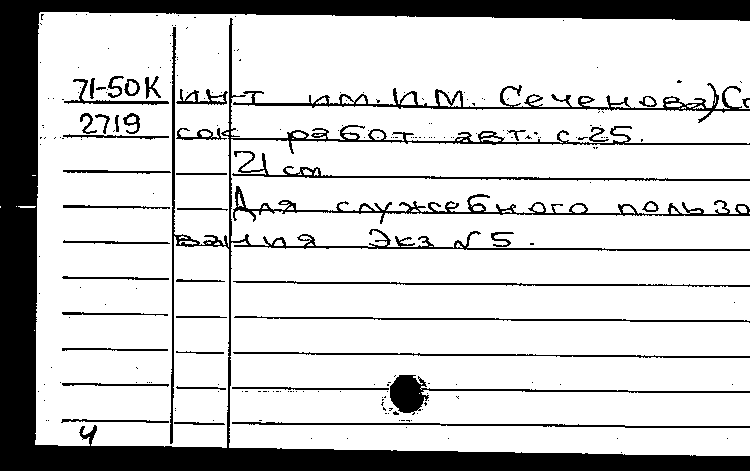 71-50К ин-т им. И.М. Сеченова) Сп
2719 сок работ авт.: с.25.
21 см
Для служебного пользо
вания Экз №5.
4